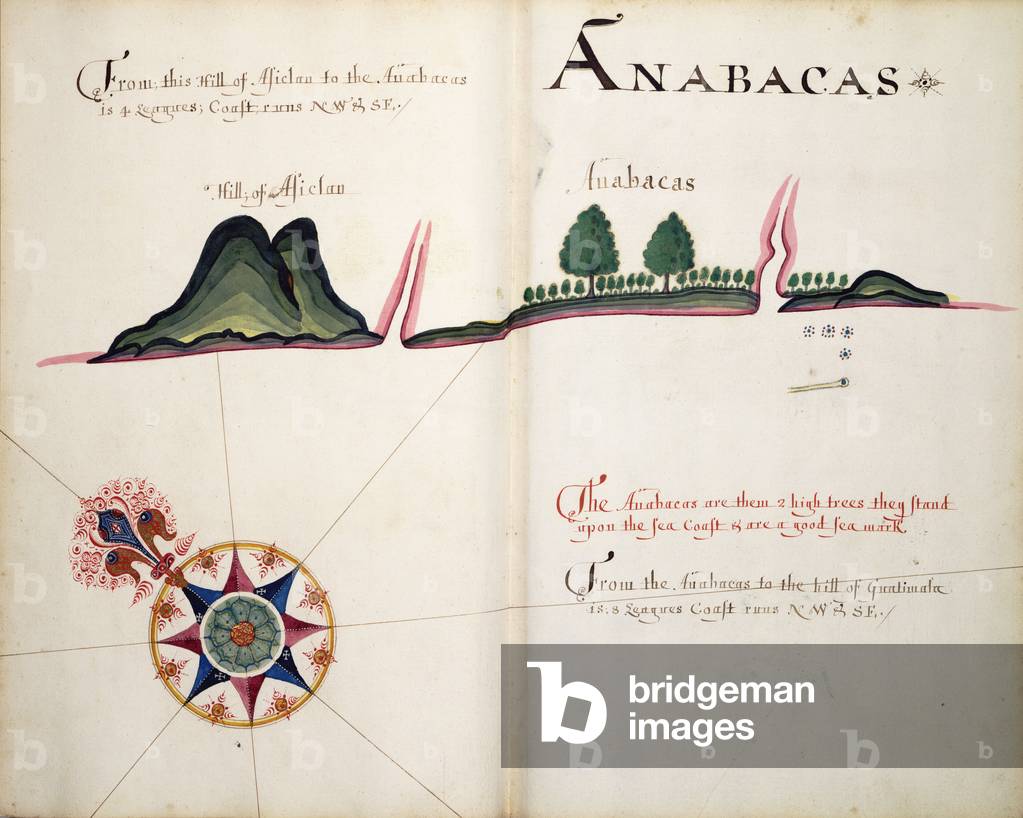 From this Hill of Asiclan to the Anabacas
is 4 Leagues; Coast runs N W & SE./
Hill; of Asiclan
ANABACAS
Anabacas
The Anabacas are them 2 high trees they stand
upon the Sea Coast & are a good sea mark
From the Anabacas to the hill of Guatimala
is; 8 Leagues Coast runs N W & SE./
b bridgeman
images